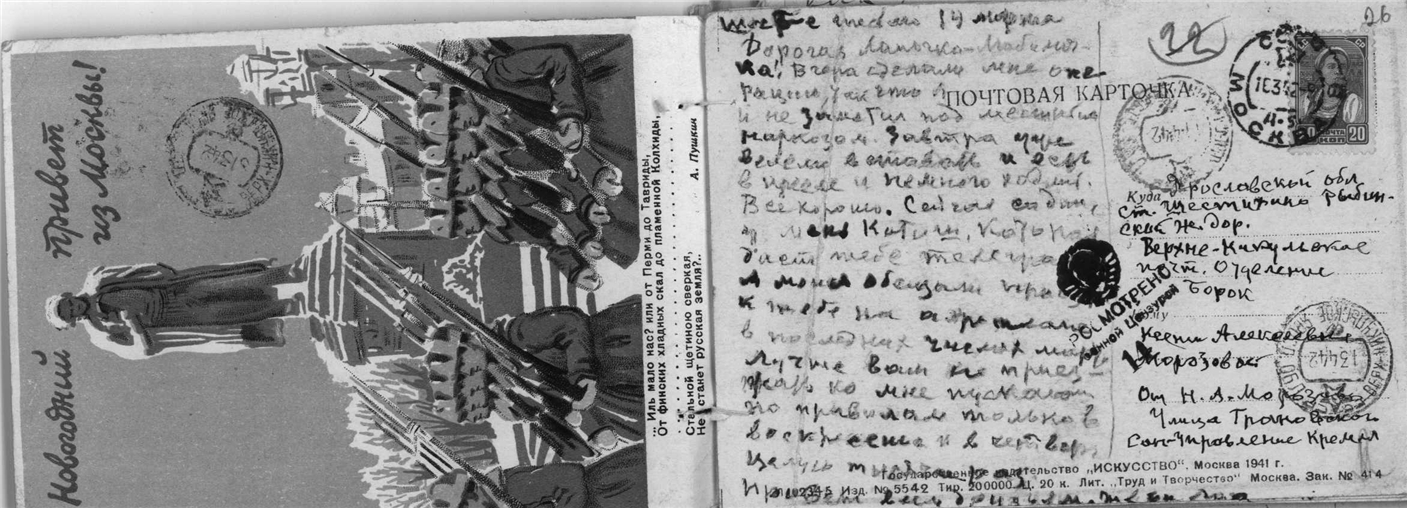 Новогодний привет
из Москвы!
... Иль мало нас? или от Перми до Тавриды,
От финских хладных скал до пламенной Колхиды,
Стальной щетиною сверкая,
Не станет русская земля?..
А. Пушкин
14 марта
Дорогая Лапочка-Мобиноч-
ка! Вчера сделали мне опе
рацию, так что я
и не заметил под местным
наркозом. Завтра уже
велели вставать и есть
в кресле и немного ходить.
Все хорошо. Сейчас сидит
у меня Катиш, которая
даст тебе телегра
А меня обещали
к тебе на
в последних числах мар
Лучше вам не приез
жать ко мне пускают
по правилам только в
воскресенье и в четверг
Целую
Привет всем друзьям.
22
26
ПОЧТОВАЯ КАРТОЧКА
МОСКВА
16342
ПОЧТА
20 КОП 20
Куда Ярославской обл
ст. Шестихино Рыбин-
ской ж. дор.
Верхне-Никульское
почт. отделение
Борок
ПРОСМОТРЕНО
Военной Цензурой
Кому
Ксении Алексеевне
Морозовой
13442
От Н. А. Морозова
Улица Грановского
Сан-Управление Кремля
Государственное издательство „ИСКУССТВО“. Москва 1941 г.
Изд. № 5542 Тир. 200000. Ц. 20 к. Лит. „Труд и Творчество“ Москва. Зак. № 414